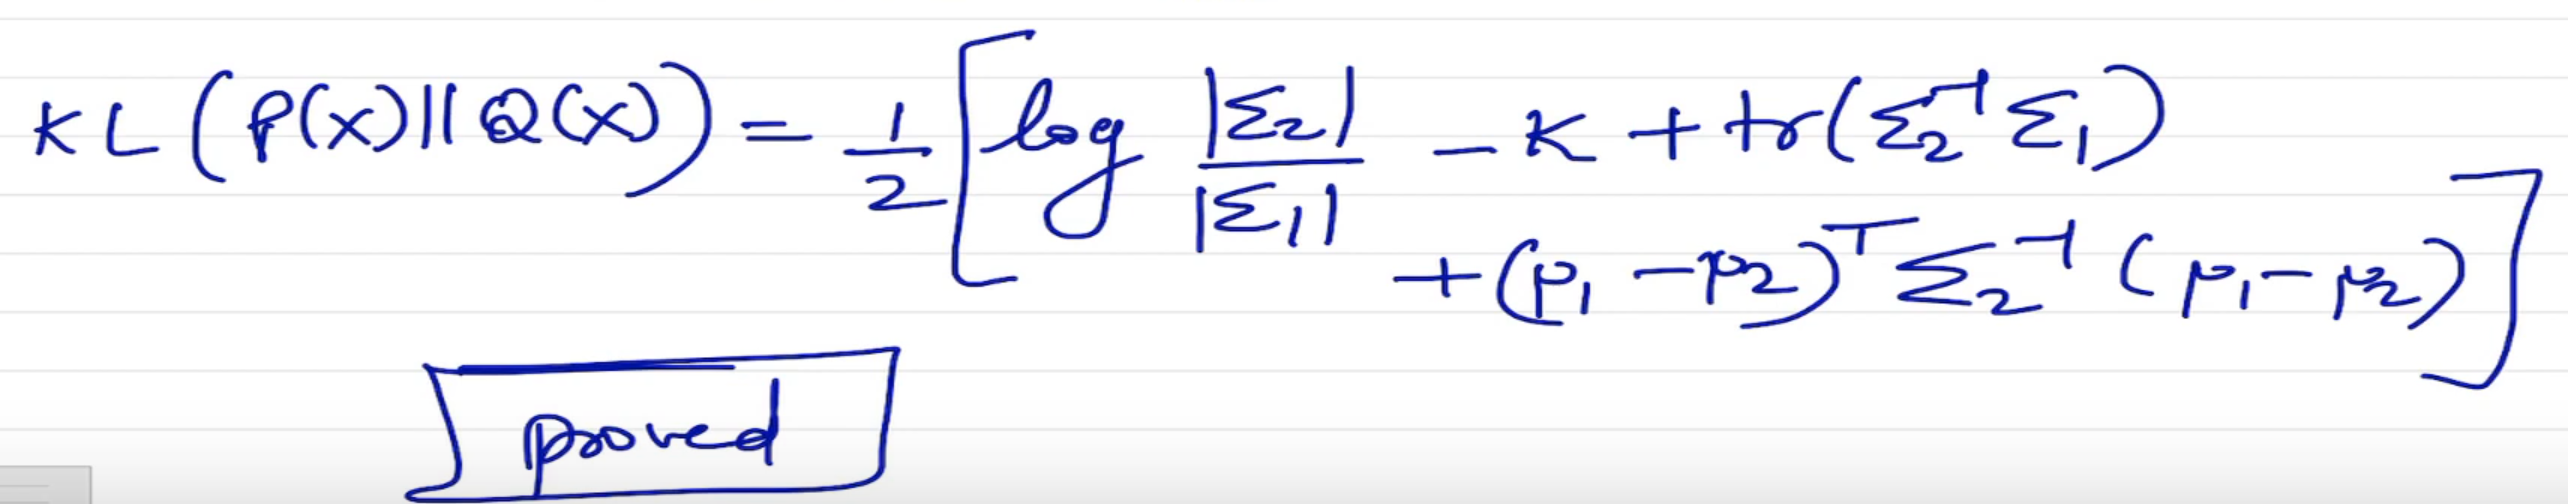 KL(P(x)||Q(x)) = 1/2 [log |Σ₂|/|Σ₁| - K + tr(Σ₂⁻¹Σ₁)
+ (μ₁ - μ₂)ᵀ Σ₂⁻¹ (μ₁ - μ₂)]
proved